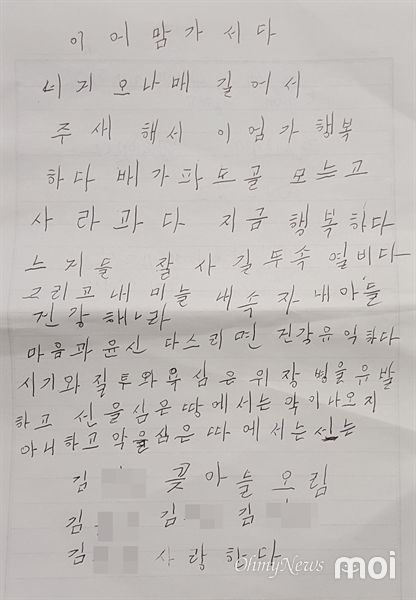 이에맘가 세다
너지 오나매 길어서
주새 해서 이엄가 행복
하다 배가파도골 모르고
사라과다 지금 행복하다
느지들 잘 사길두속 열비다
그리고 내 미늘 내 속자 내 아들
건강해니라
마음과 윤신 다스리면 건강유익하다
시기와 질투와 욕심은 위장병을 유발
하고 선을 심은 땅에서는 악이나오지
아니하고 악을심은 따에서는 선는
김 꽂아늘 오림
김 김 김
김 사랑한다
OhmyNews
moi